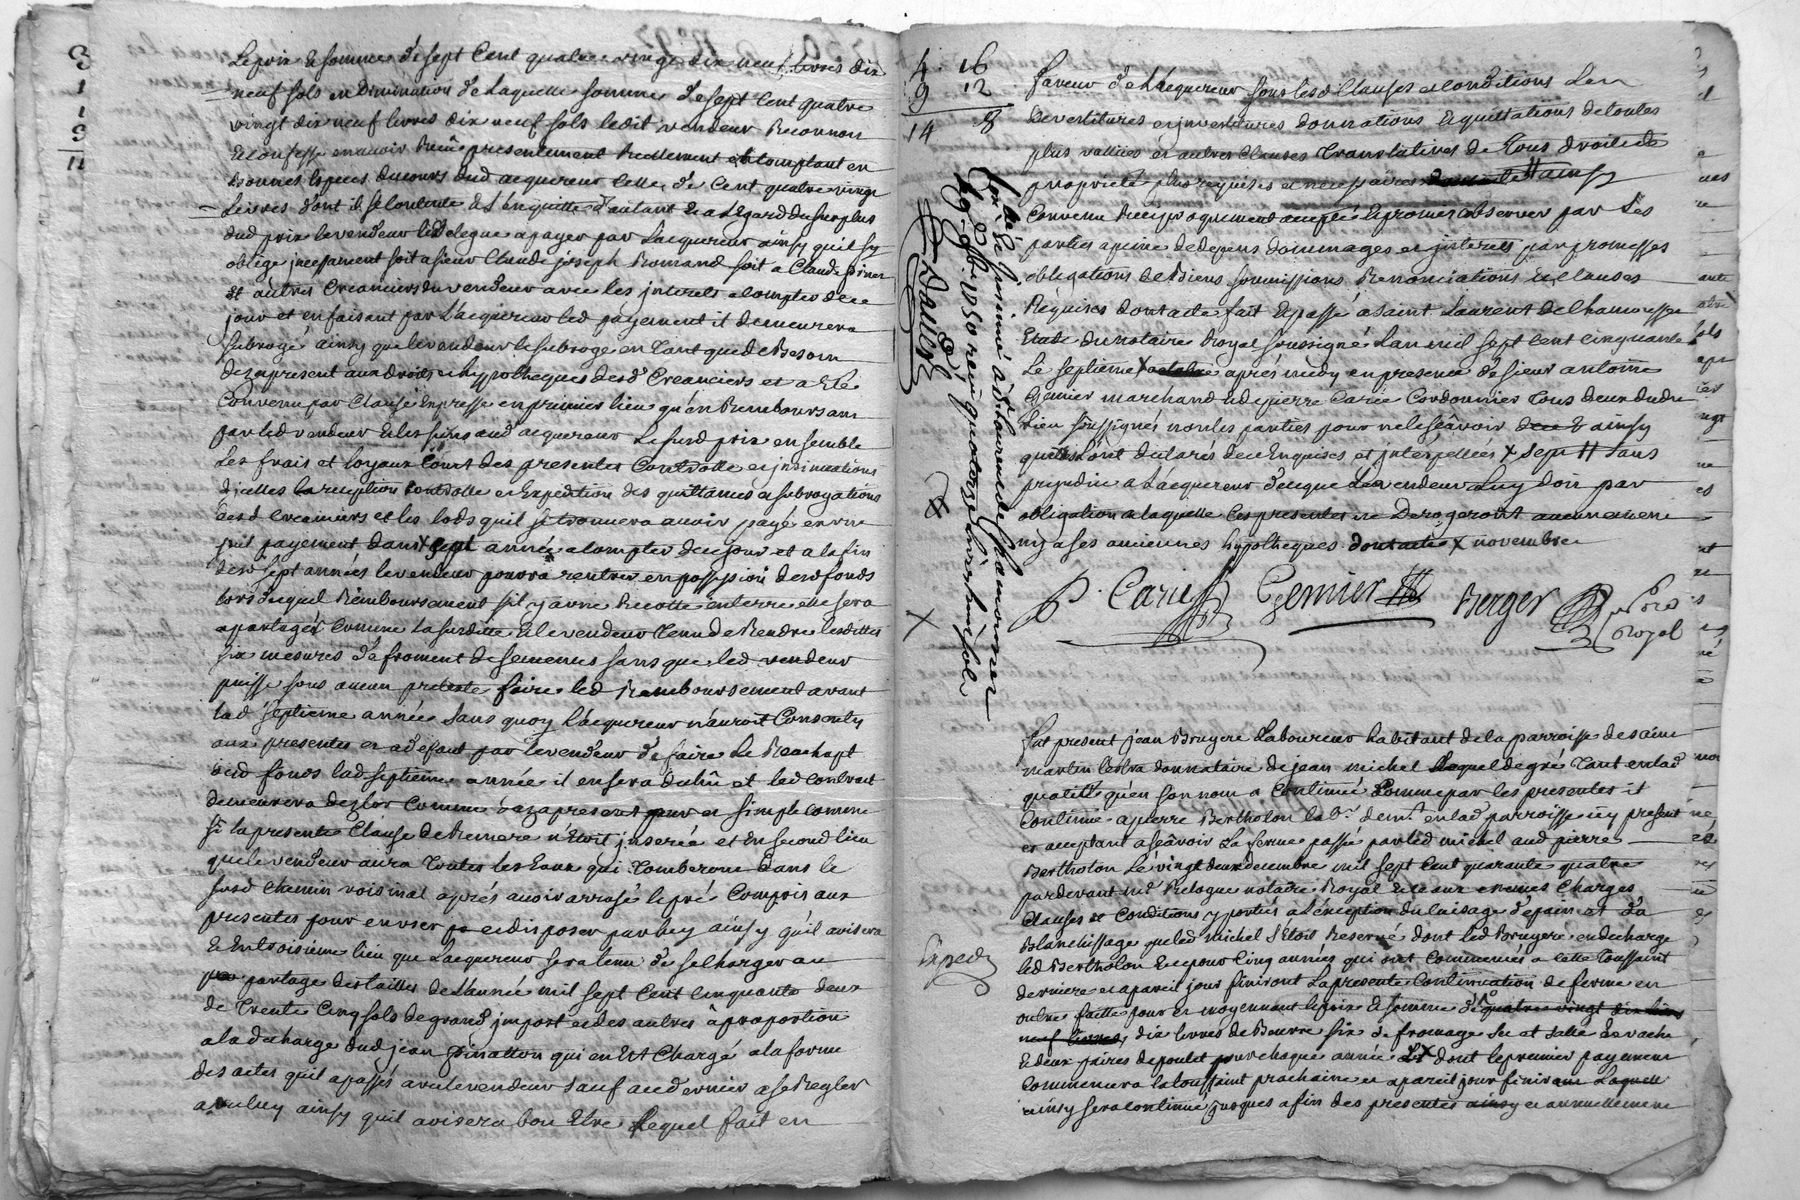 3
1
1
9
11
Le prix & somme de sept cent quatre vingt dix neuf livres dix
neuf sols en diminution de laquelle somme de sept cent quatre
vingt dix neuf livres dix neuf sols ledit vendeur reconnoit
et confesse en avoir presentement reellement et comptant en
bonnes especes du cours dud acquereur celle de cent quatre vingt
livres dont il se contente & l'en quitte d'autant et a l'egard du surplus
dud prix le vendeur delegue a payer par l'acquereur ainsy qu'il sy
oblige incessament soit a sieur Claude joseph Romand soit a Claude
et autres creanciers du vendeur avec les interets a compter de ce
jour et en faisant par l'acquereur led payement il demeurera
subrogé ainsy que le vendeur le subroge en tant que de besoin
dez a present aux droits et hypotheques desd creanciers et a eté
convenu par clause expresse en premier lieu qu'en remboursant
par led vendeur & les siens aud acquereur le susd prix ensemble
les frais et loyaux couts des presentes controlle et insinuations
d'icelles la reception controlle et expedition des quittances et subrogations
desd creanciers et les lods qu'il se trouvera avoir payé en un
seul payement dans sept années a compter de ce jour et a la fin
desd sept années le vendeur pourra rentrer en possession desd fonds
lors duquel remboursement s'il y a une recolte en terre elle sera
apartagée comme la susditte & le vendeur tenu de rendre lesdittes
six mesures de froment de semences sans que led vendeur
puisse sous aucun pretexte faire led remboursement avant
lad septieme année sans quoy l'acquereur n'auroit consenty
aux presentes et a defaut par le vendeur de faire le reachept
desd fonds lad septieme année il en sera dechû et led contract
demeurera dez lors comme dez a present pour et simple comme
si la presente clause de remere n'etoit inserée et en second lieu
que le vendeur aura toutes les eaux qui tomberont dans le
susd chemin voisinal aprés avoir arrosé le pré compris aux
presentes pour en user et disposer par luy ainsy qu'il avisera
& en troisieme lieu que l'acquereur sera tenu de se charger au
partage des tailles de l'année mil sept cent cinquante deux
de trente cinq sols de grand impost et des autres à proportion
a la decharge dud jean qui en est chargé a la forme
des actes qu'il a passés avec le vendeur sauf au dernier a se regler
avec luy ainsy qu'il avisera bon etre lequel fait en
4 16
9 12
14 8
faveur de l'acquereur sous lesd clauses et conditions les
devestitures et investitures donnations & quittations de toutes
plus vallües et autres clauses translatives de tous droits de
proprieté plus requises et necessaires H ainsy
convenu reciproquement accepté & promis observer par les
parties a peine de depens dommages et interets par promesses
obligations de biens soumissions renonciations & clauses
requises dont acte fait & passé a saint Laurent de Chamousset
etude du notaire royal soussigné l'an mil sept cent cinquante
le septieme X octobre aprés midy en presence de sieur antoine
Gemier marchand & de pierre Carie cordonnier tous deux dudit
lieu soussignés non les parties pour ne le sçavoir ainsy
qu'elles l'ont declarés de ce enquises et interpellées X sept H sans
prejudice a l'acquereur de ce que le vendeur luy doit par
obligation a laquelle ces presentes ne derogeront aucunement
ny a ses anciennes hypotheques dont acte X novembre
P. Carie Gemier Berger no.re royal
Con.lé & insinué à St Laurent de Chamousset
le 9 9bre 1750 reçu quatorze livres huit sols
Dauers
X
Fut present jean Bruyere laboureur habitant de la parroisse de saint
martin donnataire de jean michel lequel de gré tant en lad
qualité qu'en son nom a continué comme par les presentes il
continue a pierre Bertholon lab.r dem.t en lad parroisse icy present
et acceptant asçavoir la ferme passée par led michel aud pierre
Bertholon le vingt deux decembre mil sept cent quarante quatre
pardevant me notaire royal & ce aux memes charges
clauses et conditions y portés a l'exception du cuisage de pain et du
blanchissage que led michel s'etoit reservé dont led Bruyere en decharge
led Bertholon & ce pour cinq années qui ont commencés a cette toussaint
derniere et a pareil jour finiront la presente continuation de ferme en
outre faitte pour et moyennant le prix & somme de quatre vingt dix
neuf livres, dix livres de beurre six de fromage sec et
& deux paires de poulet pour chaque année dont le premier payement
commencera la toussaint prochaine et a pareil jour finir laquelle
ainsy sera continué jusques a fin des presentes ainsy et annuellement
Exped